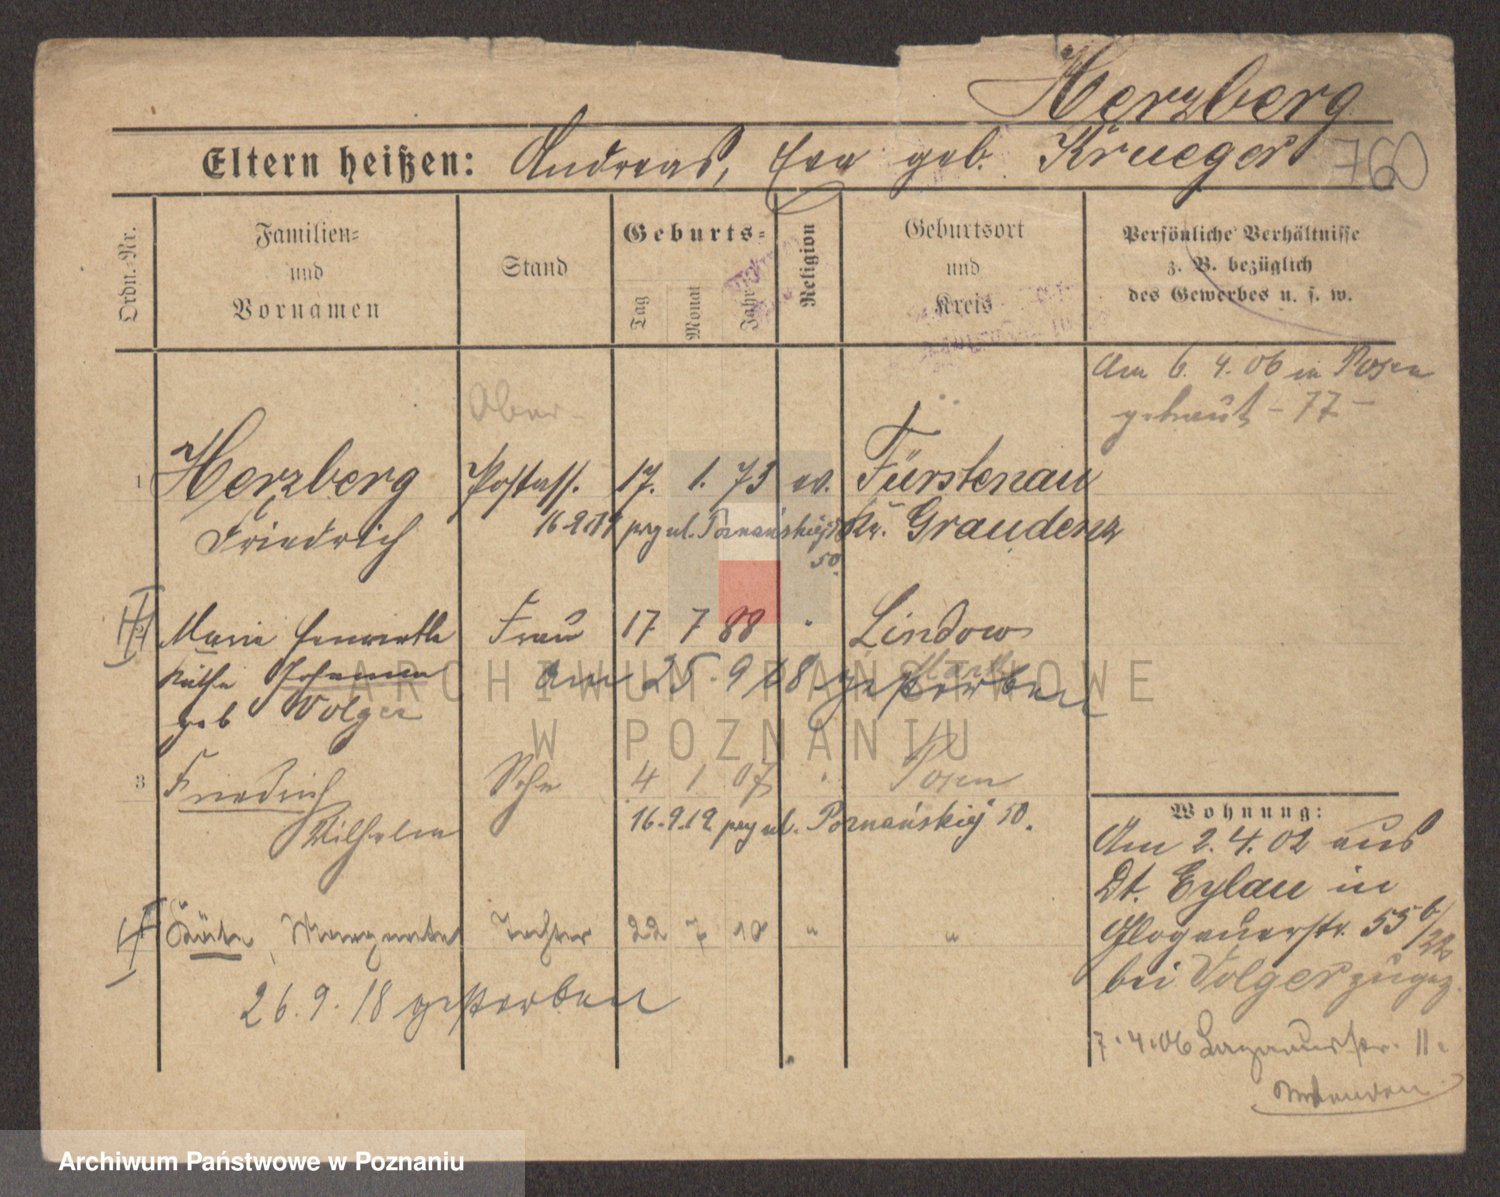 Herzberg
Eltern heißen: Andreas, Eva geb. Krueger
760
Ordn.-Nr.
Familien-
und
Vornamen
Stand
Geburts-
Tag
Monat
Jahr
Religion
Geburtsort
und
Kreis
Persönliche Verhältnisse
z. B. bezüglich
des Gewerbes u. s. w.
Am 6. 4. 06 in Posen
getraut - 77 -
Ober-
1 Herzberg Postass. 17. 1. 73 ev. Fürstenau
Friedrich Kr. Graudenz
przy ul. Poznańskiej
50.
2 Marie Henriette Frau 17 7 88 " Lindow
Käthe Johanna
geb Volger
am 25. 9 18 gestorben
3 Friedrich Sohn 4 1 07 " Posen
Wilhelm
16.9.19 przy ul. Poznańskiej 50.
Käte Margarete Tochter 22 7 10 " "
26. 9. 18 gestorben
Wohnung:
Am 2. 4. 02 aus
Dt. Eylau in
Glogauerstr. 55
bei Volger zugez.
7. 4. 06 11.
ARCHIWUM PAŃSTWOWE
W POZNANIU
Archiwum Państwowe w Poznaniu